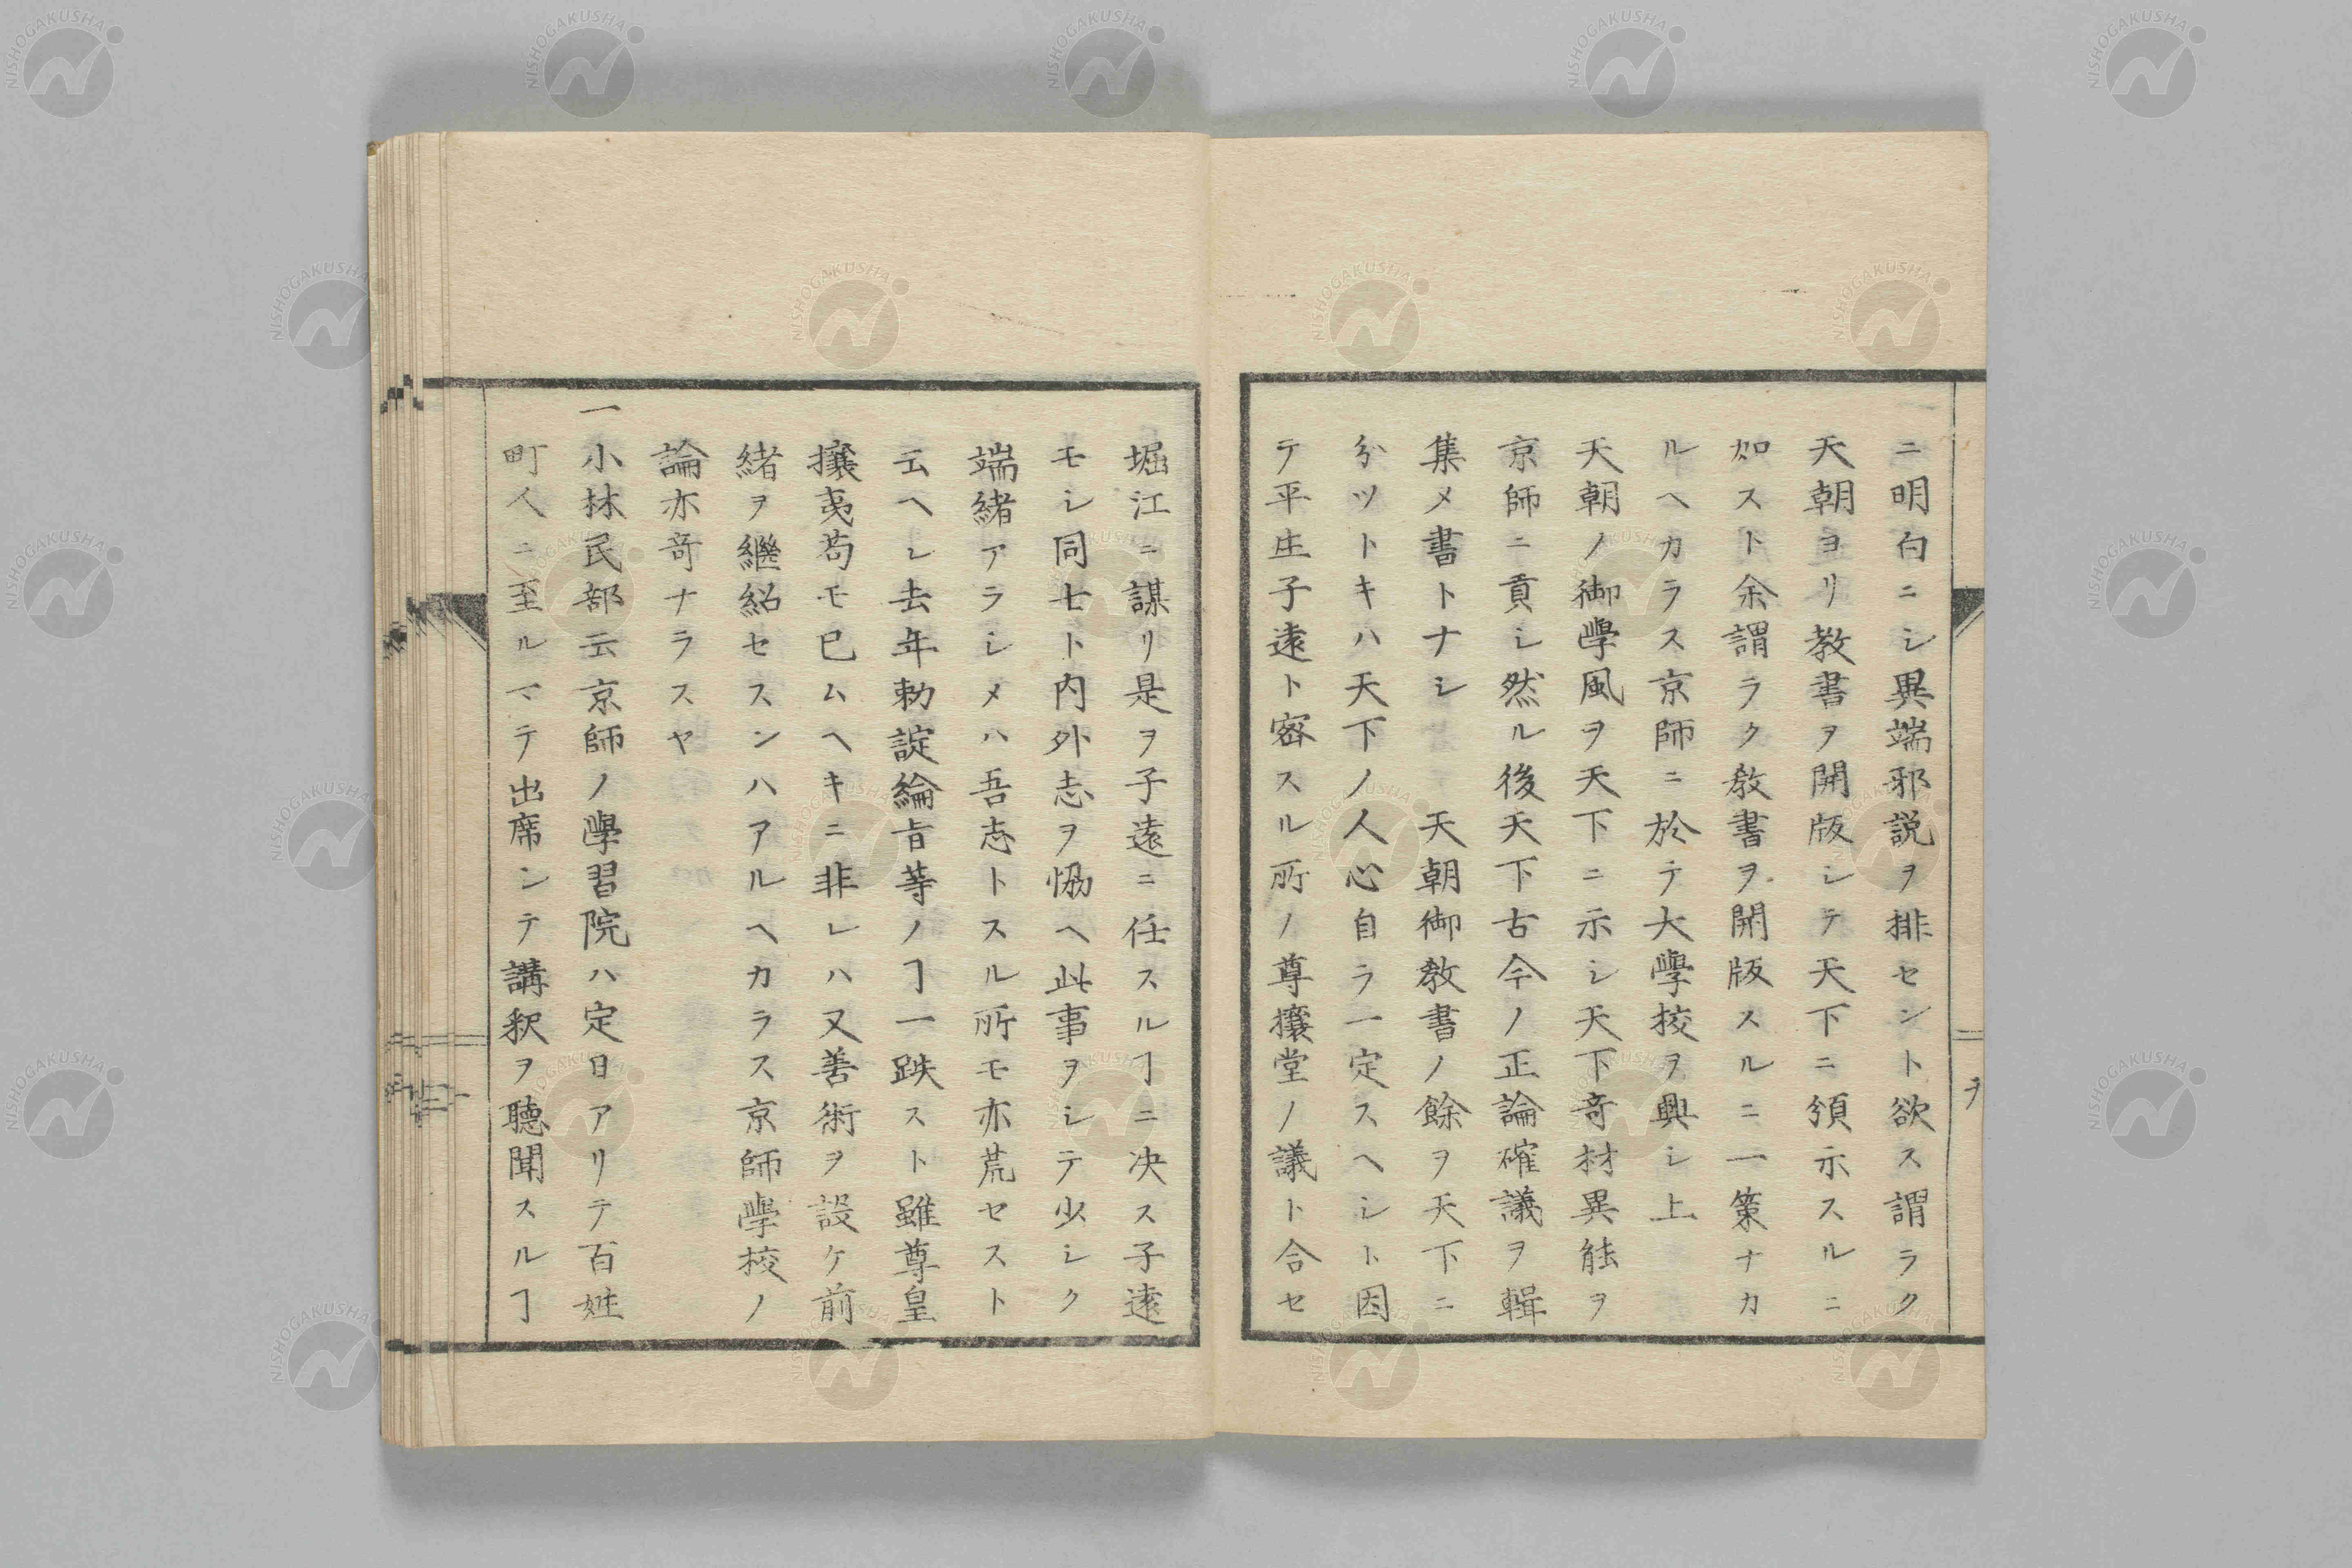 ニ明白ニシ異端邪説ヲ排セント欲ス謂ラク
天朝ヨリ教書ヲ開版シテ天下ニ頒示スルニ
如スト余謂ラク教書ヲ開版スルニ一策ナカ
ルヘカラス京師ニ於テ大學校ヲ興シ上
天朝ノ御學風ヲ天下ニ示シ天下竒材異能ヲ
京師ニ貢シ然ル後天下古今ノ正論確議ヲ輯
集メ書トナシ天朝御教書ノ餘ヲ天下ニ
分ツトキハ天下ノ人心自ラ一定スヘシト因
テ平生子遠ト密スル所ノ尊攘堂ノ議ト合セ
堀江ニ謀リ是ヲ子遠ニ任スルヿニ决ス子遠
モシ同七ト内外志ヲ恊ヘ此事ヲシテ少シク
端緒アラシメハ吾志トスル所モ亦荒セスト
云ヘシ去年勅諚綸旨等ノヿ一跌スト雖尊皇
攘夷苟モ已ムヘキニ非レハ又善術ヲ設ケ前
緒ヲ繼紹セスンハアルヘカラス京師學校ノ
論亦竒ナラスヤ
一小林民部云京師ノ學習院ハ定日アリテ百姓
町人ニ至ルマテ出席シテ講釈ヲ聴聞スルヿ
ヲ
NISHOGAKUSHA